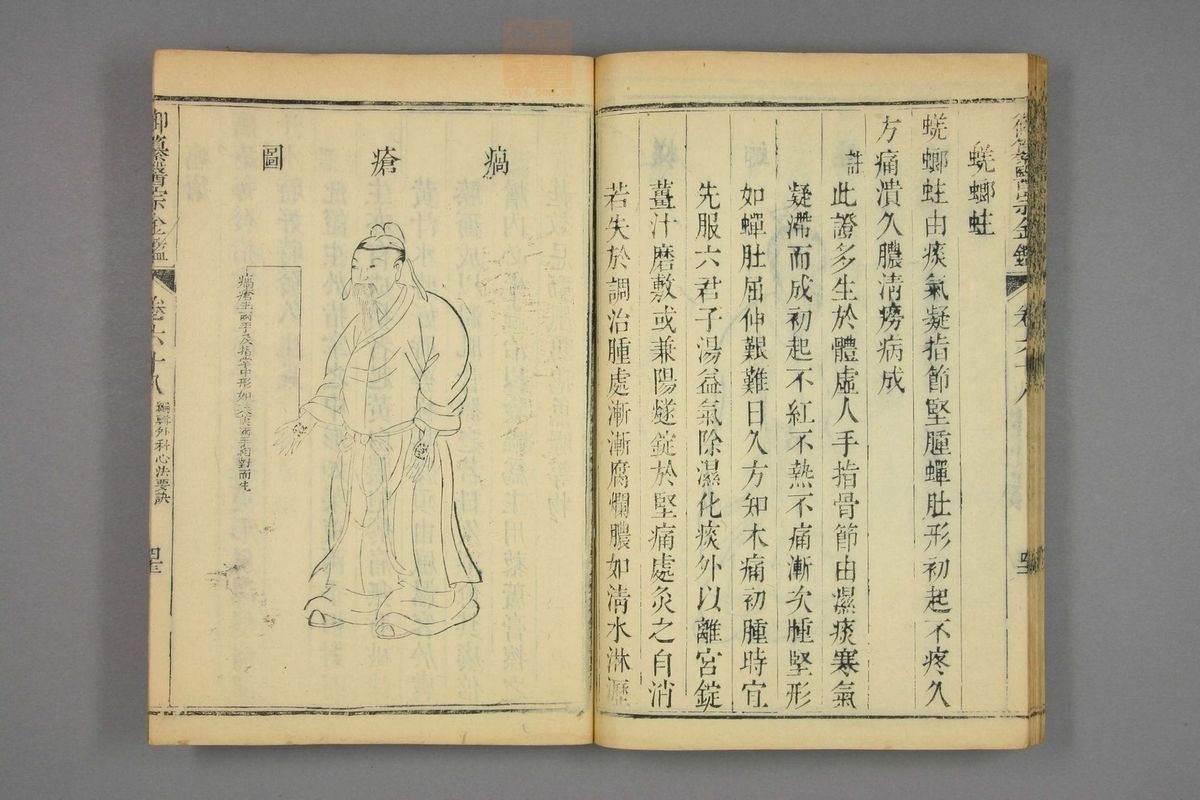 蜣螂蛀
蜣螂蛀由痰氣凝指節堅腫蟬肚形初起不疼久
方痛潰久膿清癆病成
註
此證多生於體虛人手指骨節由濕痰寒氣
凝滯而成初起不紅不熱不痛漸次腫堅形
如蟬肚屈伸艱難日久方知木痛初腫時宜
先服六君子湯益氣除濕化痰外以離宮錠
薑汁磨敷或兼陽燧錠於堅痛處灸之自消
若失於調治腫處漸漸腐爛膿如清水淋瀝
御纂醫宗金鑑
卷六十八
瘑瘡圖
瘑瘡生兩手及指掌中形如茱萸兩手相對而生
御纂醫宗金鑑
卷六十八
編輯外科心法要訣